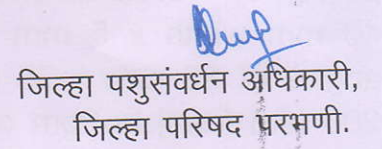 जिल्हा पशुसंवर्धन अधिकारी,
जिल्हा परिषद परभणी.